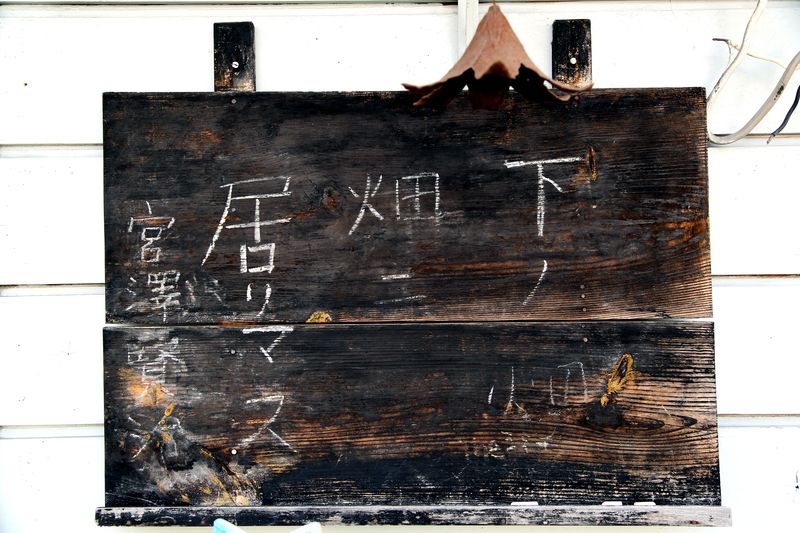 下ノ
畑ニ
居リマス
宮澤賢治